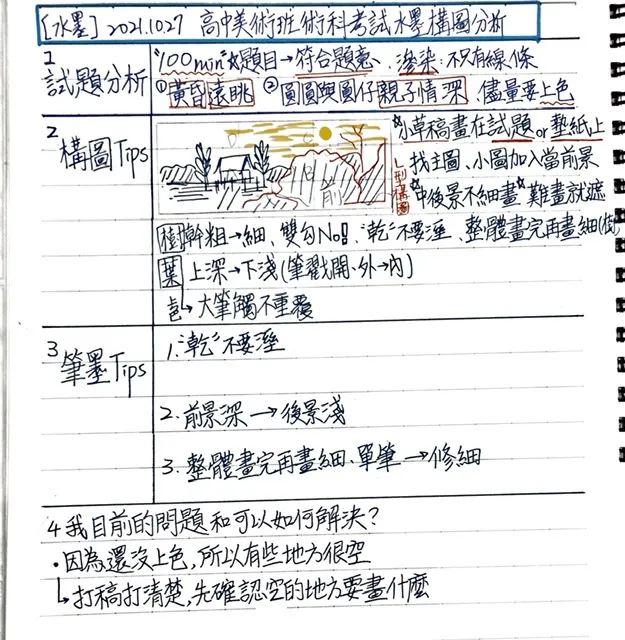 [水墨] 2021.10.27 高中美術班術科考試水墨構圖分析
1 試題分析
"100min"☆題目→符合題意、渲染:不只有線條
①黃昏遠眺 ②圓圓與圓仔親子情深、儘量要上色
2 構圖Tips
☆小草稿畫在試題or墊紙上
找主圖、小圖加入當前景
☆中後景不細畫☆難畫就遮
L型構圖
前
樹幹粗→細、雙勾No!、"乾"不要溼、整體畫完再畫細(樹)
葉 上深→下淺(筆戳開、外→內)
↳大筆觸不重覆
3 筆墨Tips
1."乾"不要溼
2.前景深→後景淺
3.整體畫完再畫細、單筆→修細
4 我目前的問題和可以如何解決?
・因為還沒上色,所以有些地方很空
↳打稿打清楚,先確認空的地方要畫什麼